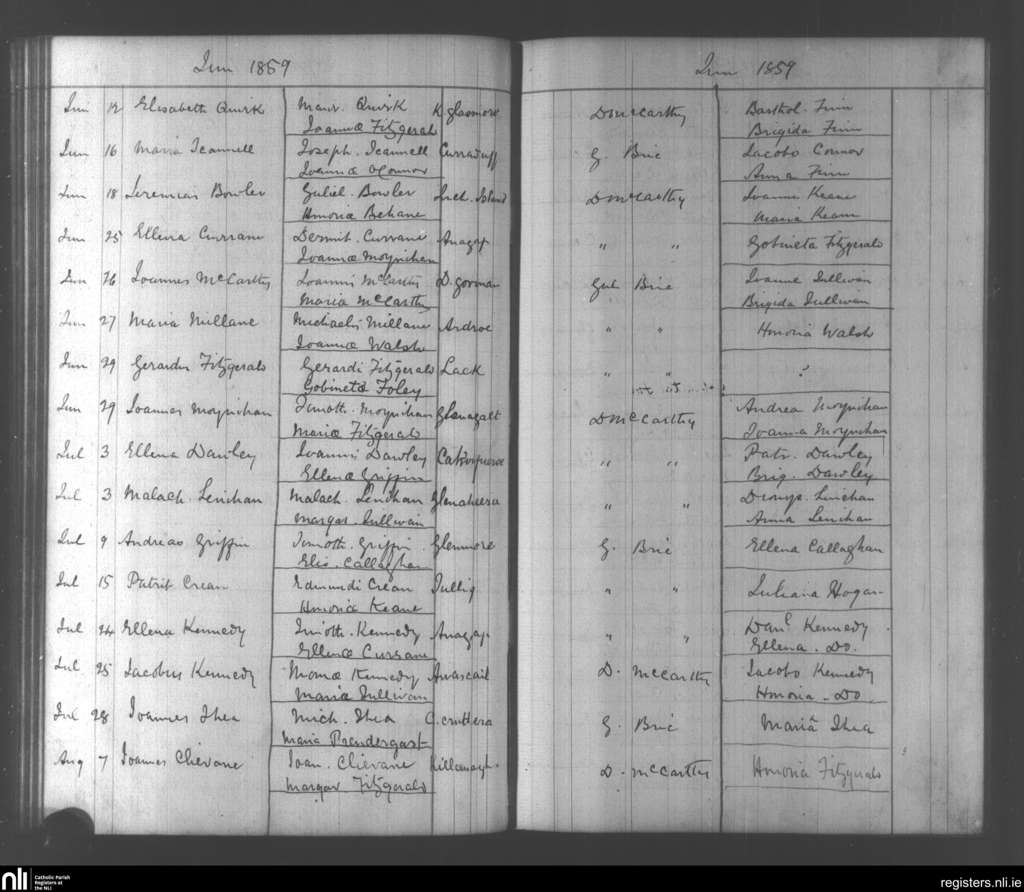 Jun 1859
Jun 1859
Jun 12 Elisabeth Quirk Maur. Quirk K glasmore D McCarthy Barthol. Finn
Joannæ Fitzgerald Brigida Finn
Jun 16 Maria Jeannell Joseph. Jeannell Curraduff G. Bric Jacobo Connor
Joannæ O'Connor Anna Finn
Jun 18 Jeremias Bowler Guliel. Bowler Inch. Island D McCarthy Joanne Keane
Honoriæ Behane Maria Keane
Jun 25 Ellena Currane Dermit. Currane Anagap " " Gobineta Fitzgerald
Joannæ Moynihan
Jun 26 Joannes McCarthy Joannis McCarthy D. gorman Gul Bric Joanne Sullivan
Maria McCarthy Brigida Sullivan
Jun 27 Maria Millane Michaelis Millane Ardroe " " Honoria Walsh
Joannæ Walsh
Jun 29 Gerardus Fitzgerald Gerardi Fitzgerald Lack " " ?
Gobinetæ Foley
Jun 29 Joannes Moynihan Timoth. Moynihan Glenagalt D McCarthy Andrea Moynihan
Mariæ Fitzgerald Joanna Moynihan
Jul 3 Ellena Dawley Joannis Dawley " " Patr. Dawley
Ellenæ Griffin Brig. Dawley
Jul 3 Malach. Lenihan Malach. Lenihan " " Dionys. Linehan
Margar. Sullivan Anna Lenihan
Jul 9 Andreas Griffin Timoth. Griffin Glenmore G. Bric Ellena Callaghan
Elis. Callaghan
Jul 15 Patrit Crean Edmundi Crean Tullig " " Juliana Hogan
Honoriæ Keane
Jul 24 Ellena Kennedy Timoth. Kennedy Anagap " " Danl Kennedy
Ellenæ Currane Ellena. Do.
Jul 25 Jacobus Kennedy Kennedy Awascail D. McCarthy Jacobo Kennedy
Mariæ Sullivan Honoria. Do.
Jul 28 Joannes Shea Mich. Shea C. cruttera G. Bric Maria Shea
Maria Prendergast
Aug 7 Joannes Clievane Joan. Clievane D. McCarthy Honoria Fitzgerald
Margar Fitzgerald
nli
Catholic Parish
Registers at
the NLI
registers.nli.ie